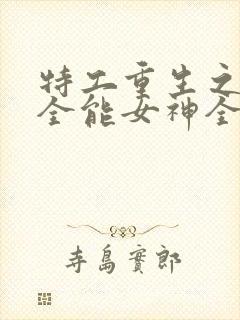 特工重生之
全能女神全
寺島實郎